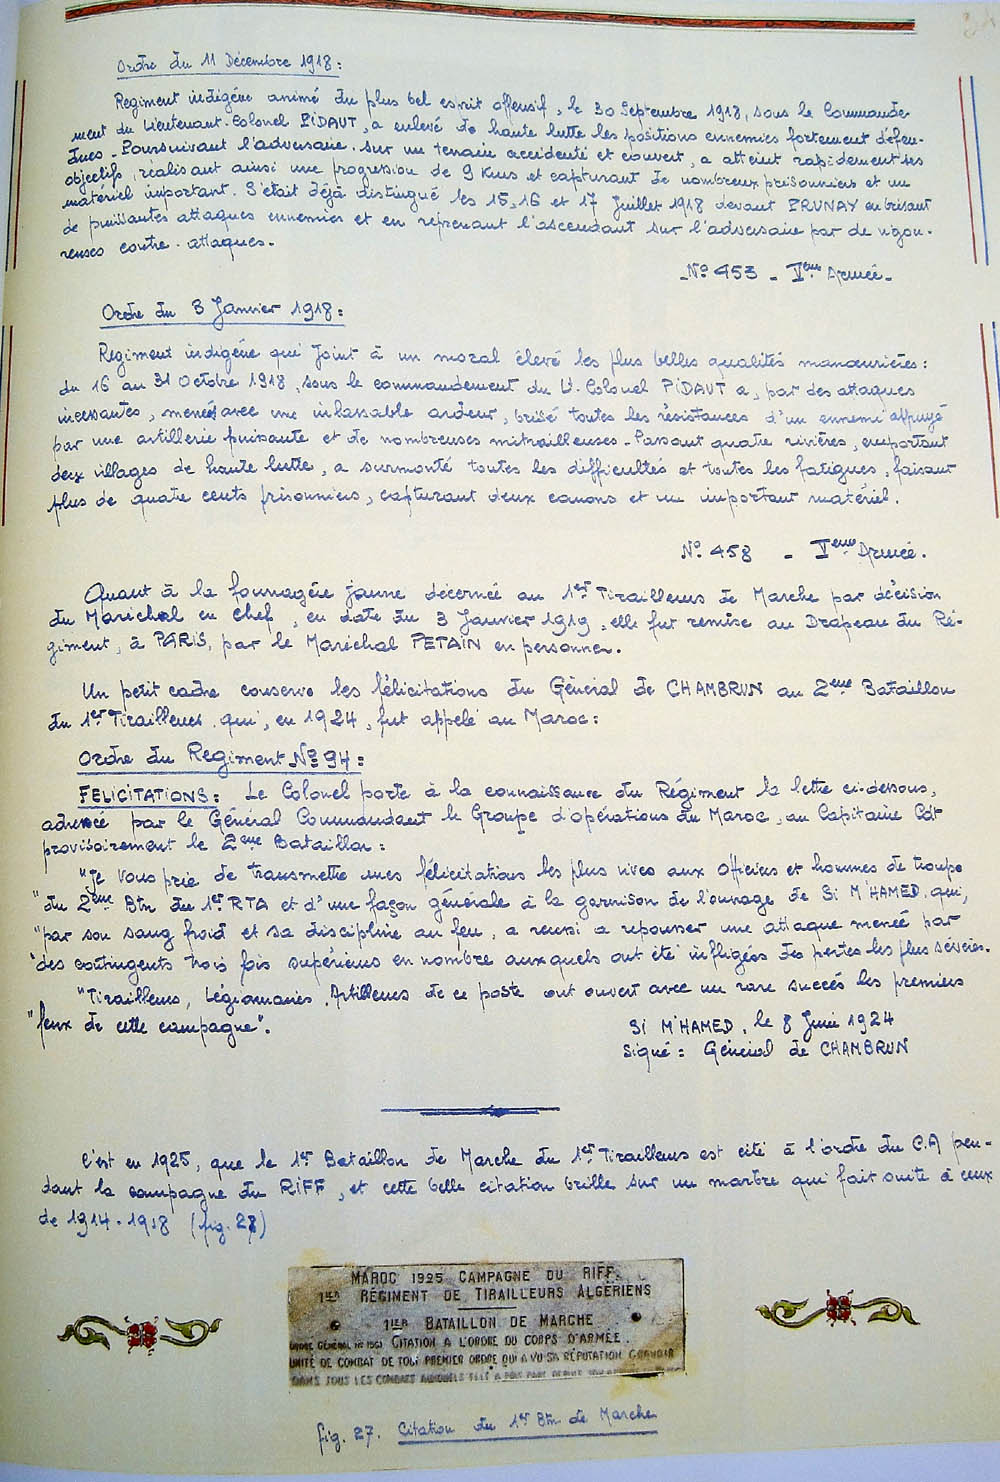 Ordre du 11 Décembre 1918 :
Regiment indigène animé du plus bel esprit offensif, le 30 Septembre 1918, sous le Commande-
ment du Lieutenant-Colonel PIDAUT, a enlevé de haute lutte les positions ennemies fortement défen-
dues - Poursuivant l'adversaire sur un terrain accidenté et couvert, a atteint rapidement ses
objectifs, réalisant ainsi une progression de 9 Kms et capturant de nombreux prisonniers et un
matériel important. S'était déjà distingué les 15, 16 et 17 Juillet 1918 devant PRUNAY en brisant
de puissantes attaques ennemies et en reprenant l'ascendant sur l'adversaire par de vigou-
reuses contre-attaques.
N° 453 - Vème Armée -
Ordre du 3 Janvier 1918 :
Regiment indigène qui joint à un moral élevé les plus belles qualités manœuvrières :
du 16 au 31 Octobre 1918, sous le commandement du Lt. Colonel PIDAUT a, par des attaques
incessantes, menées avec une inlassable ardeur, brisé toutes les résistances d'un ennemi appuyé
par une artillerie puissante et de nombreuses mitrailleuses - Passant quatre rivières, emportant
deux villages de haute lutte, a surmonté toutes les difficultés et toutes les fatigues, faisant
plus de quatre cents prisonniers, capturant deux canons et un important matériel.
N° 458 - Vème Armée.
Quant à la fourragère jaune décernée au 1er Tirailleurs de Marche par décision
du Maréchal en Chef, en date du 3 Janvier 1919, elle fut remise au Drapeau du Ré-
giment, à PARIS, par le Maréchal PETAIN en personne.
Un petit cadre conserve les félicitations du Général de CHAMBRUN au 2eme Bataillon
du 1er Tirailleurs qui, en 1924, fut appelé au Maroc :
Ordre du Regiment N° 94 :
FELICITATIONS : Le Colonel porte à la connaissance du Régiment la lettre ci-dessous,
adressée par le Général Commandant le Groupe d'opérations du Maroc, au Capitaine Cdt
provisoirement le 2eme Bataillon :
"Je vous prie de transmettre mes félicitations les plus vives aux Officiers et hommes de troupe
"du 2ème Btn du 1er RTA et d'une façon générale à la garnison de l'ouvrage de Si M'HAMED qui,
"par son sang froid et sa discipline au feu, a reussi a repousser une attaque menée par
"des contingents trois fois supérieurs en nombre auxquels ont été infligées des pertes les plus sévères.
"Tirailleurs, Légionnaires, Artilleurs de ce poste ont ouvert avec un rare succès les premiers
"feux de cette campagne".
Si M'HAMED, le 8 Juin 1924
Signé : Général de CHAMBRUN
C'est en 1925, que le 1er Bataillon de Marche du 1er Tirailleurs est cité à l'ordre du C.A pen-
dant la campagne du RIFF, et cette belle citation brille sur un marbre qui fait suite à ceux
de 1914-1918 (fig. 27)
MAROC 1925 CAMPAGNE DU RIFF.
1ER RÉGIMENT DE TIRAILLEURS ALGÉRIENS
1IER BATAILLON DE MARCHE
CITATION A L'ORDRE DU CORPS D'ARMÉE.
UNITÉ DE COMBAT DE TOUT PREMIER ORDRE QUI A VU SA RÉPUTATION GRANDIR
DANS TOUS LES COMBATS
fig. 27. Citation du 1er Btn de Marche